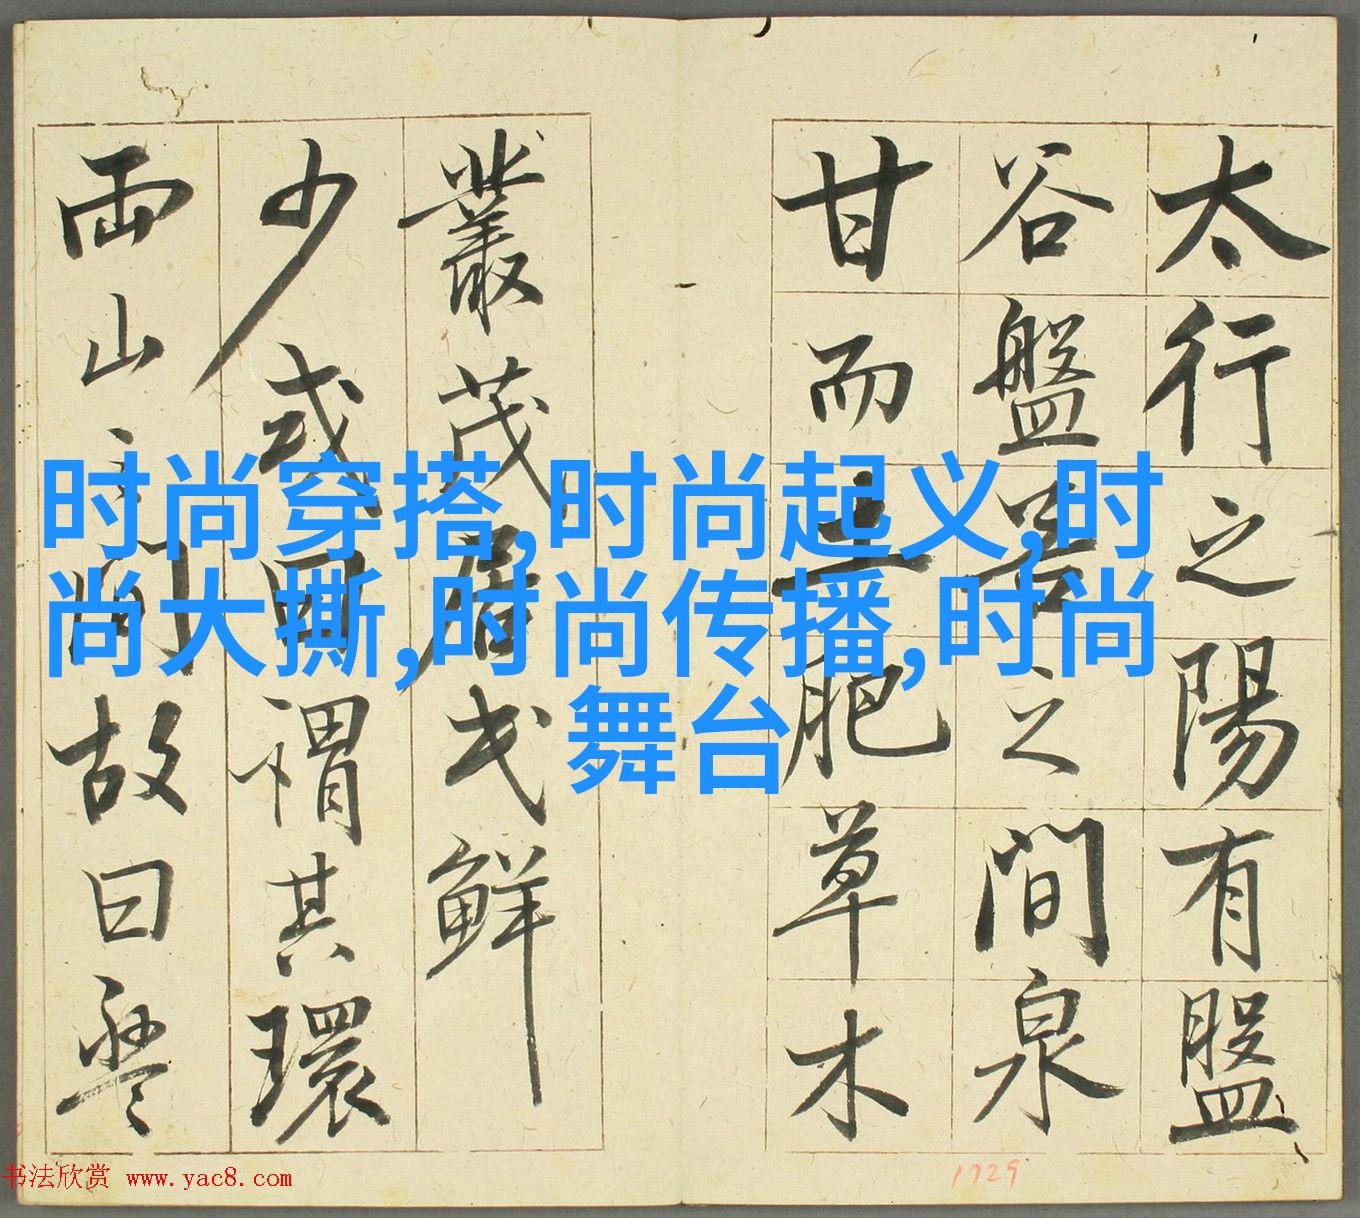 太行之陽有盤
谷盤谷之間泉
甘而土肥草木
叢茂居民鮮
少或曰謂其環
兩山之間故曰盤
时尚穿搭,时尚起义,时
尚大撕,时尚传播,时尚
舞台
书法欣赏 www.yac8.com
1729